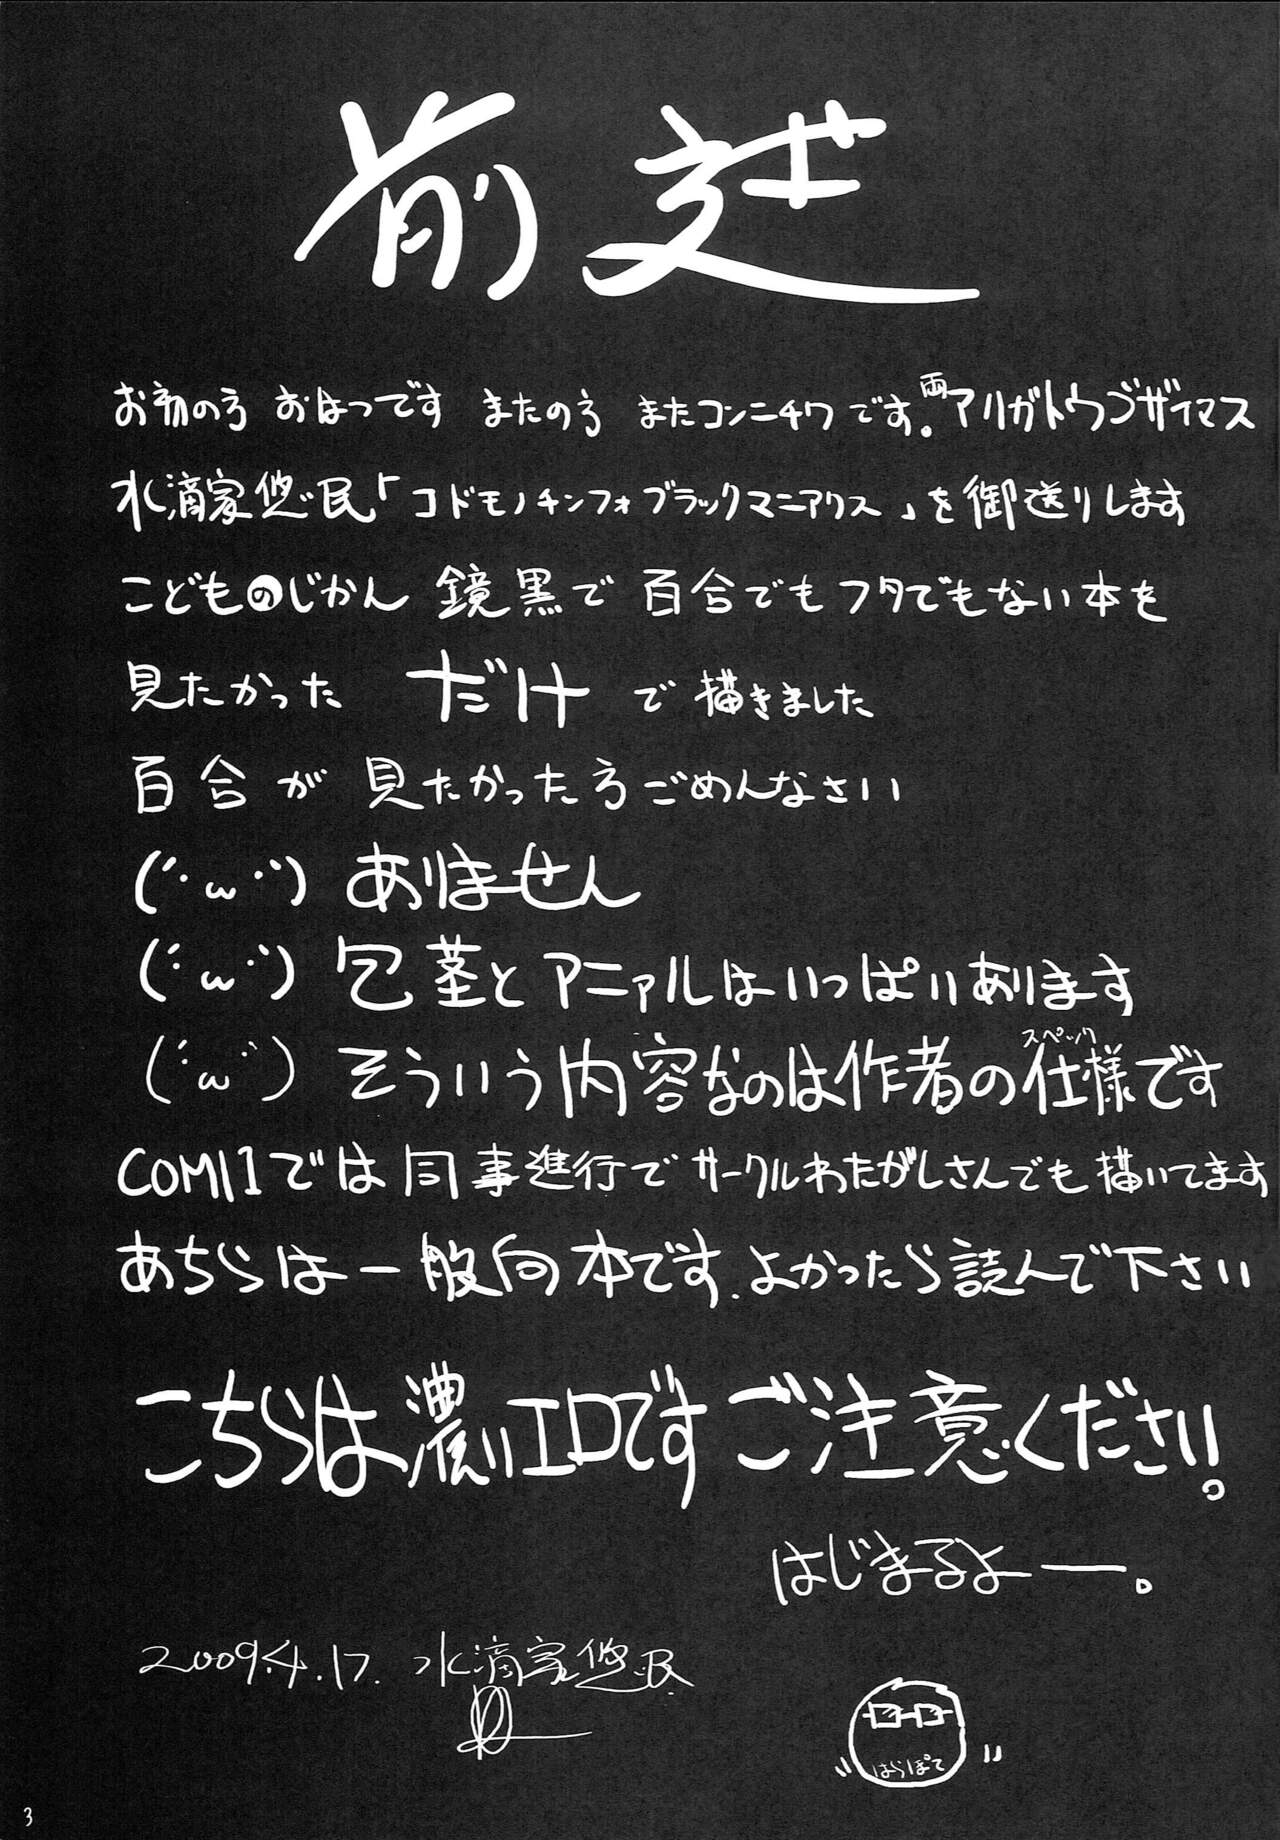 前述
お初の方 おはつです またの方 またコンニチワです。両アリガトウゴザイマス
水滴家悠民「コドモノチンフォブラックマニアクス」を御送りします
こどものじかん 鏡黒で 百合でもフタでもない本を
見たかった だけ で描きました
百合が 見たかった方ごめんなさい
(´･ω･`) ありません
(´･ω･`) 包茎とアニァルはいっぱいあります
(´･ω･`) そういう内容なのは作者の仕様です
スペック
COMIC1では同事進行でサークルわたがしさんでも描いてます
あちらは一般向本です.よかったら読んで下さい
こちらは濃いエロです ご注意ください。
はじまるよー。
2009.4.17. 水滴家悠民
はらぽて
3